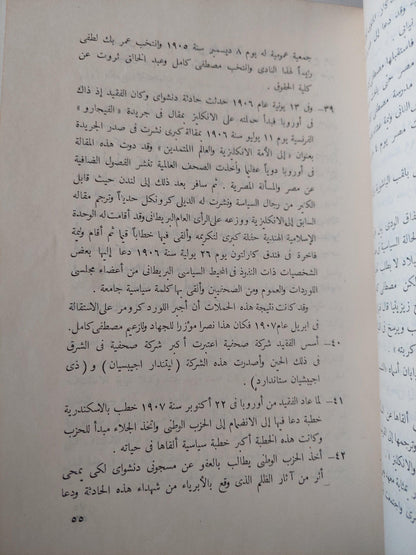 جمعية عمومية له يوم ٨ ديسمبر سنة ١٩٠٥ وانتخب عمر بك لطفى
رئيسا لهذا النادى وانتخب مصطفى كامل وعبد الخالق ثروت عن
كلية الحقوق .
٣٩- وفى ١٣ يونية عام ١٩٠٦ حدثت حادثة دنشواى وكان الفقيد إذ ذاك
فى أوروبا فبدأ حملته على الانكليز بمقال فى جريدة « الفيجارو »
الفرنسية يوم ١١ يوليو سنة ١٩٠٦ بمقالة كبرى نشرت فى صدر الجريدة
بعنوان « إلى الأمة الانكليزية والعالم المتمدين » وقد دوت هذه المقالة
فى أوروبا دوياً عظيماً وأخذت الصحف العالمية تنشر الفصول الضافية
عن مصر والمسألة المصرية . ثم سافر بعد ذلك إلى لندن حيث قابل
الكثير من رجال السياسة ونشرت له الديلى كرونكل حديثاً وترجم مقاله
السابق إلى الانكليزية ووزعه على الرأى العام البريطانى وقد أقامت له الوحدة
الإسلامية الهندية حفلة كبرى لتكريمه وألقى فيها خطاباً قيما ثم أقام وليمة
فاخرة فى فندق كارلتون يوم ٢٦ يولية ١٩٠٦ دعا إليها بعض
الشخصيات ذات النفوذ فى المحيط السياسى البريطانى من أعضاء مجلسى
اللوردات والعموم ومن الصحفيين وألقى بها كلمة سياسية جامعة .
وقد كانت نتيجة هذه الحملات أن أجبر اللورد كرومر على الاستقالة
فى ابريل عام ١٩٠٧ فكان هذا نصرا مؤزرا للجهاد ولزعيم مصطفى كامل.
٤٠- أسس الفقيد شركة صحفية اعتبرت أكبر شركة صحفية فى الشرق
فى ذلك الحين وأصدرت هذه الشركة ( ليتندار اجيبسيان ) و ( ذى
اجبشيان ستاندارد ) .
٤١- لما عاد الفقيد من أوروبا فى ٢٢ أكتوبر سنة ١٩٠٧ خطب بالاسكندرية
خطبة دعا فيها إلى الانضمام إلى الحزب الوطنى واتخذ الجلاء مبدأ للحزب
وكانت هذه الخطبة أكبر خطبة سياسية ألقاها فى حياته .
٤٢- أخذ الحزب الوطنى يطالب بالعفو عن مسجونى دنشواى لكى يمحى
أثر من آثار الظلم الذى وقع بالأبرياء من شهداء هذه الحادثة ودعا
٥٥